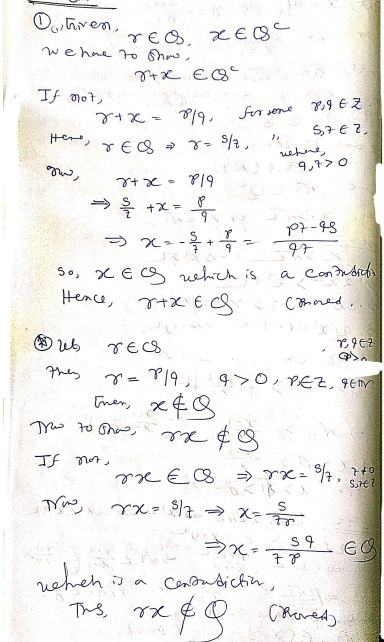 ①. Given, r ∈ Q, x ∈ Q^c
we have to show,
r+x ∈ Q^c
If not,
r+x = p/q, for some p,q ∈ Z
Here, r ∈ Q ⇒ r = s/7, " s,7 ∈ Z,
where, q,7>0
Now, r+x = p/q
⇒ s/7 + x = p/q
⇒ x = -s/7 + p/q = (p7-qs)/(q7)
So, x ∈ Q which is a contradictn
Hence, r+x ∈ Q (Proved.
✱ Let r ∈ Q p,q ∈ Z
then r = p/q, q>0, p∈Z, q∈N
Given, x ∉ Q
Now to show, rx ∉ Q
If not,
rx ∈ Q ⇒ rx = s/7, 7≠0 s,7∈Z
Now, rx = s/7 ⇒ x = s/(7r)
⇒ x = (sq)/(7p) ∈ Q
which is a contradiction,
Thus, rx ∉ Q (Proved)